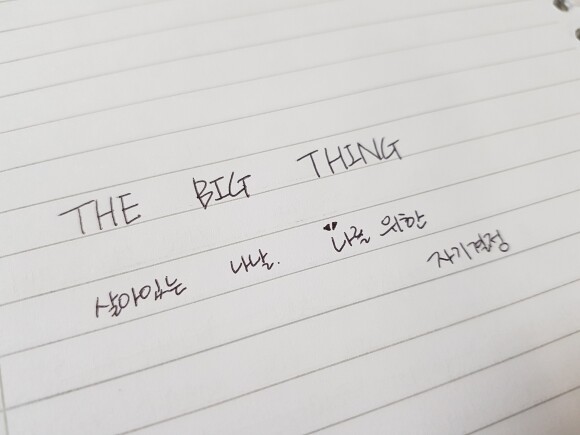 THE BIG THING
살아있는 나날. 나를 위한
자기결정